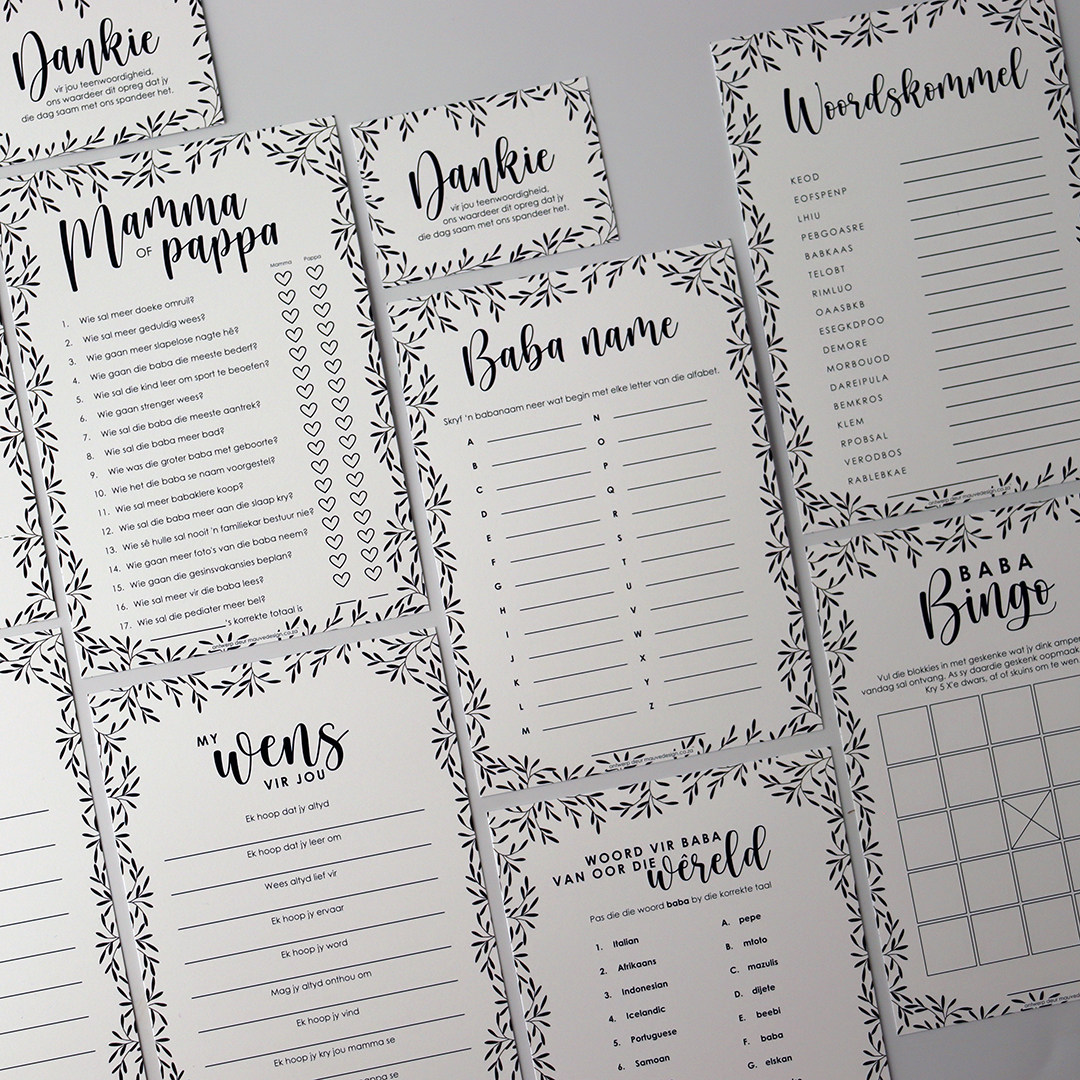 Dankie
vir jou teenwoordigheid,
ons waardeer dit opreg dat jy
die dag saam met ons spandeer het.
Mamma
OF pappa
Mamma Pappa
1. Wie sal meer doeke omruil?
2. Wie sal meer geduldig wees?
3. Wie gaan meer slapelose nagte hê?
4. Wie gaan die baba die meeste bederf?
5. Wie sal die kind leer om sport te beoefen?
6. Wie gaan strenger wees?
7. Wie sal die baba die meeste aantrek?
8. Wie sal die baba meer bad?
9. Wie was die groter baba met geboorte?
10. Wie het die baba se naam voorgestel?
11. Wie sal meer babaklere koop?
12. Wie sal die baba meer aan die slaap kry?
13. Wie sê hulle sal nooit 'n familiekar bestuur nie?
14. Wie gaan meer foto's van die baba neem?
15. Wie gaan die gesinsvakansies beplan?
16. Wie sal meer vir die baba lees?
17. Wie sal die pediater meer bel?
's korrekte totaal is
ontwerp deur mauvedesign.co.za
Dankie
vir jou teenwoordigheid,
ons waardeer dit opreg dat jy
die dag saam met ons spandeer het.
Baba name
Skryf 'n babanaam neer wat begin met elke letter van die alfabet.
A N
B O
C P
D Q
E R
F S
G T
H U
I V
J W
K X
L Y
M Z
ontwerp deur mauvedesign.co.za
Woordskommel
KEOD
EOFSPENP
LHIU
PEBGOASRE
BABKAAS
TELOBT
RIMLUO
OAASBKB
ESEGKDPOO
DEMORE
MORBOUOD
DAREIPULA
BEMKROS
KLEM
RPOBSAL
VERODBOS
RABLEBKAE
ontwerp deur mauvedesign.co.za
MY
wens
VIR JOU
Ek hoop dat jy altyd
Ek hoop dat jy leer om
Wees altyd lief vir
Ek hoop jy ervaar
Ek hoop jy word
Mag jy altyd onthou om
Ek hoop jy vind
Ek hoop jy kry jou mamma se
WOORD VIR BABA
VAN OOR DIE wêreld
Pas die die woord baba by die korrekte taal
1. Italian A. pepe
2. Afrikaans B. mtoto
3. Indonesian C. mazulis
4. Icelandic D. dijete
5. Portuguese E. beebi
6. Samoan F. baba
G. elskan
BABA
Bingo
Vul die blokkies in met geskenke wat jy dink
vandag sal ontvang. As sy daardie geskenk oopmaak
Kry 5 X'e dwars, af of skuins om te wen
ontwerp deur mauvedesign.co.za